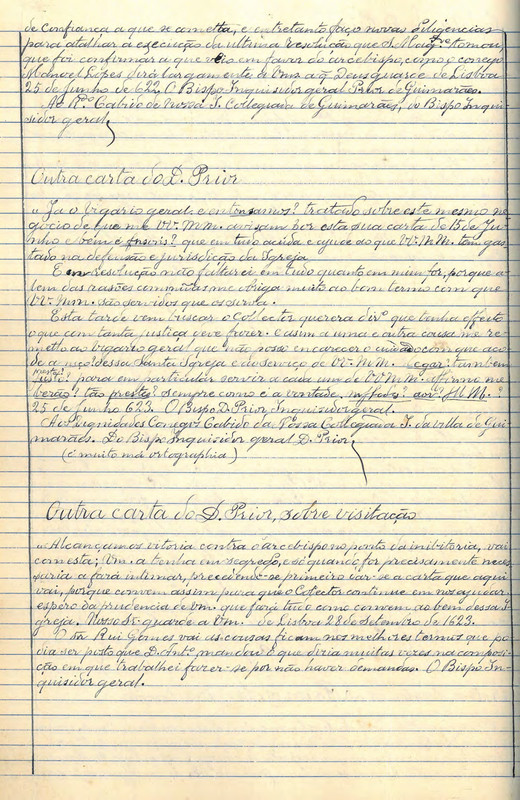 de confiança a que se cometta, e entretanto faço novas diligencias
para atalhar a execução da ultima resolução que S. Mag.de tomou,
que foi confirmar a que veio em favor do arcebispo, como o conego
Manoel Lopes dirá largamente a Vms. a q. Deus guarde de Lisboa
25 de Junho de 622, O Bispo Inquisidor geral Prior de Guimarães.
Ao R.do Cabido de Nossa S. Collegiada de Guimarães, do Bispo Inqui-
sidor geral
Outra carta do D. Prior
"Ja o vigario geral e tratado sobre este mesmo ne-
gocio de que me VV. MM. avisam por esta sua carta de 15 de Ju-
nho e bem é que em tudo acuda e ajude ao que VV. MM. têm gas-
tado na defensão e jurisdição da Igreja.
E em resolução não faltarei em tudo quanto em mim for, porque a-
lem das rasões communs me obriga muito ao bem termo com que
VV. Mm. são servidos que os sirva.
Esta tarde vem buscar o Collector quererá D.s que tenha effeito
o que com tanta justiça deve fazer. e assim a uma e outra cousa me re-
metto ao vigario geral que não posso encarecer o cuidado com que aco-
de a dessa Santa Igreja e do serviço de VV. M.M. tambem
para em particular servir a cada um de VV. MM. affirmo me
tão sempre como é a vontade,
25 de Junho 623. O Bispo D. Prior Inquisidor geral.
Aos Dignidades Conegos Cabido da Nossa Collegiada I. da villa de Gui-
marães. Do Bispo Inquisidor geral D. Prior
(é muito má ortographia)
Outra carta do D. Prior, sobre visitação
"Alcançamos vitoria contra o arcebispo no ponto da inibitoria, vai
com esta; Vm. a tenha em segredo, e só quando for precisamente neces-
saria a fará intimar, precedendo-se primeiro dar-se a carta que aqui
vai, porque convem assim para que o Colector continue em nos ajudar.
espero da prudencia de Vm. que fará tudo como convem ao bem dessa I-
greja. Nosso Sr. guarde a Vm. de Lisboa 22 de Setembro de 1623.
O Sr. Rui Gomes vai as cousas ficam nos melhores termos que po-
dia ser posto que D. Ant.o mandou o que diria muitas vezes na composi-
ção em que trabalhei fazer-se por não haver demandas. O Bispo In-
quisidor geral.